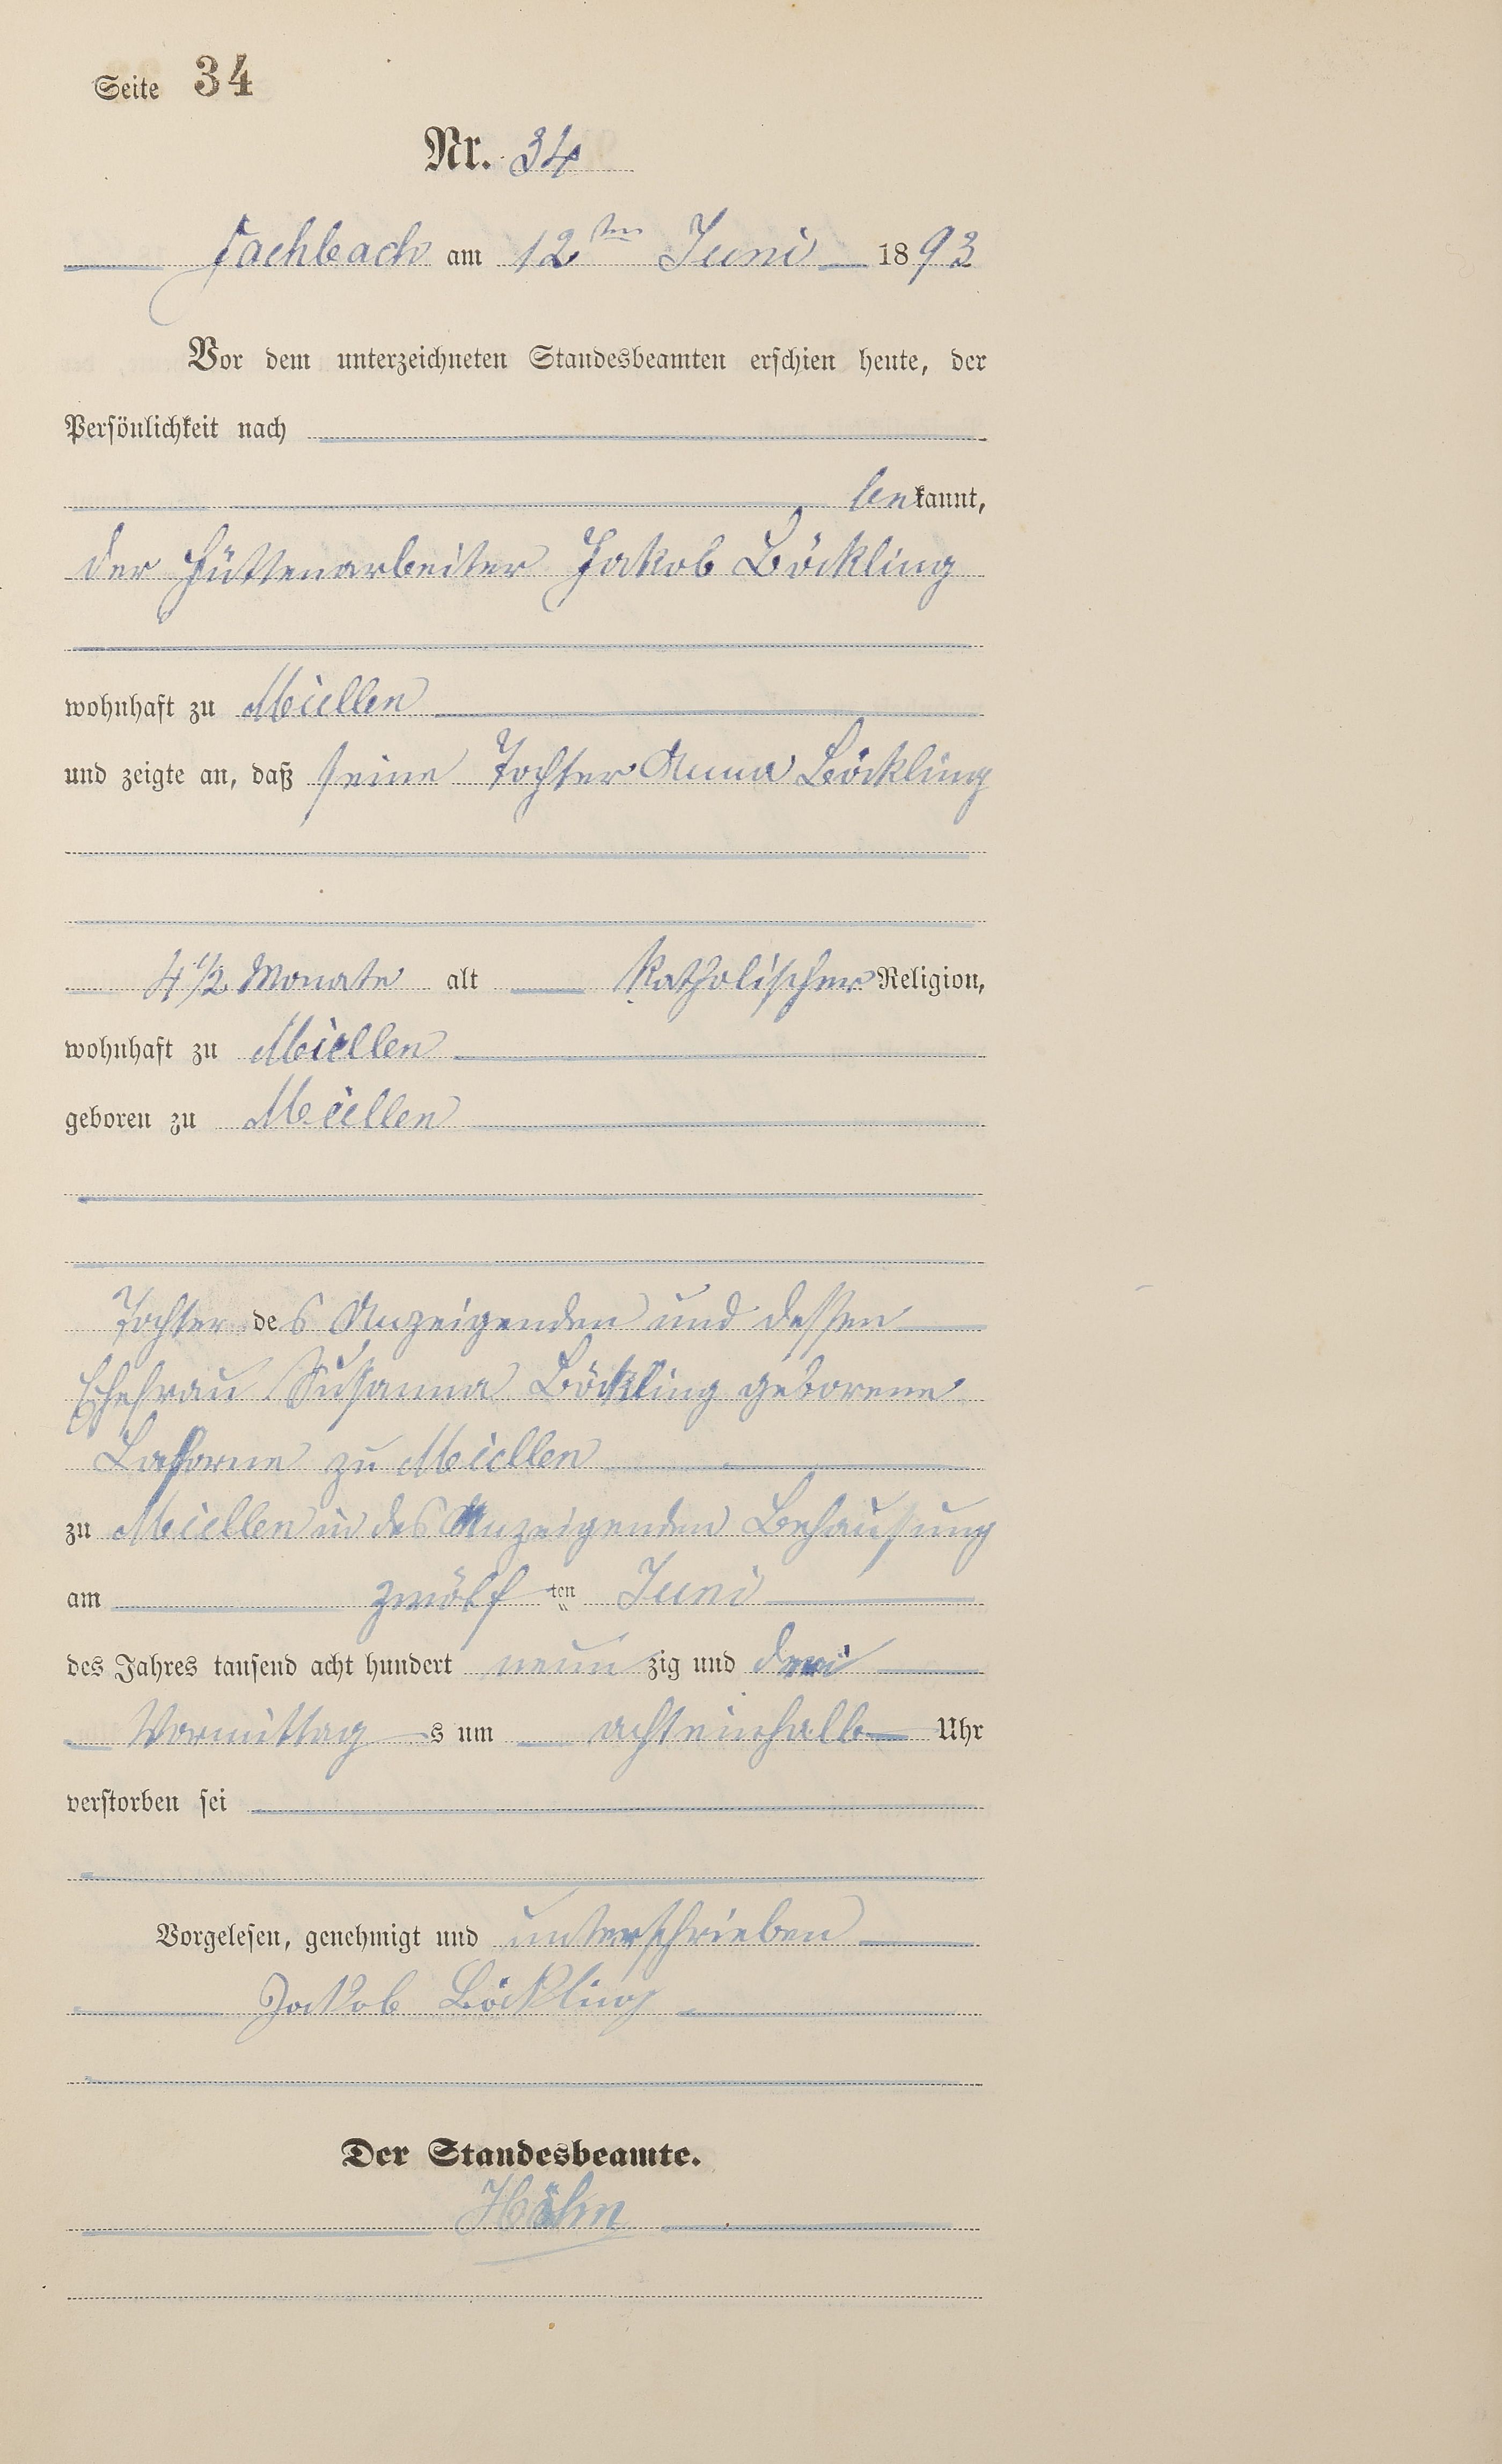 Seite 34
Nr. 34
Fachbach am 12ten Juni 1893
Vor dem unterzeichneten Standesbeamten erschien heute, der
Persönlichkeit nach
bekannt,
der Hüttenarbeiter Jakob Böckling
wohnhaft zu Miellen
und zeigte an, daß seine Tochter Anna Böckling
4 1/2 Monate alt Katholischer Religion,
wohnhaft zu Miellen
geboren zu Miellen
Tochter des Anzeigenden und dessen
Ehefrau Susanna Böckling geborene
zu Miellen
zu Miellen in des Anzeigenden Behausung
am zwölften Juni
des Jahres tausend acht hundert neunzig und drei
Vormittags um achteinhalb Uhr
verstorben sei
Vorgelesen, genehmigt und unterschrieben
Jakob Böckling
Der Standesbeamte.
Höhn